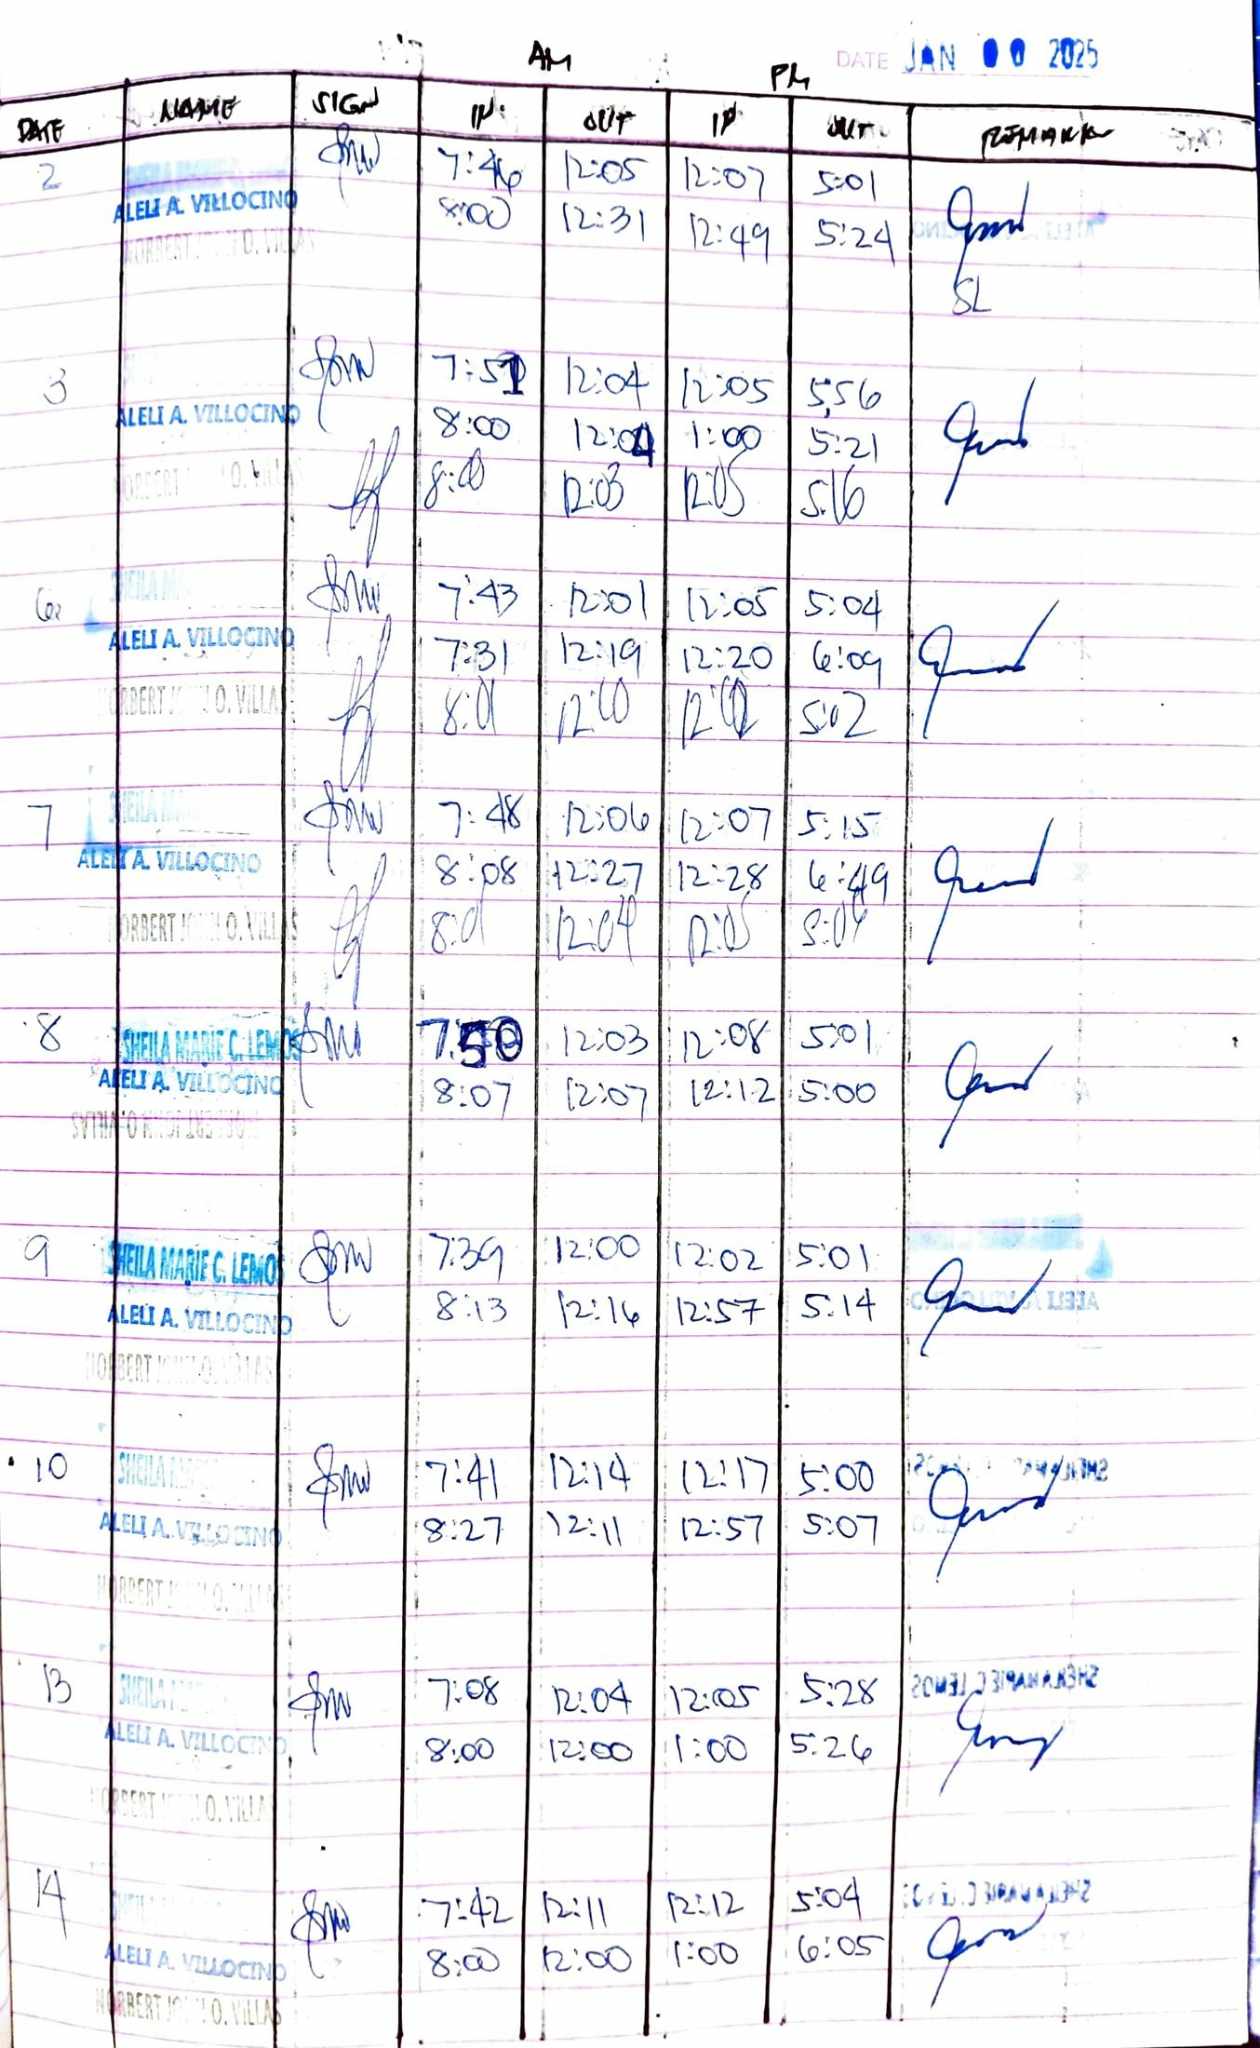 AM PM DATE JAN 00 2025
DATE NAME SIGN IN: OUT IN OUT REMARK
2 7:46 12:05 12:07 5:01
ALELI A. VILLOCINO 8:00 12:31 12:49 5:24
NORBERT JOHN O. VILLAS SL
3 7:51 12:04 12:05 5:56
ALELI A. VILLOCINO 8:00 12:04 1:00 5:21
NORBERT O. VILLAS 8:00 12:03 12:05 5:16
6 SHEILA 7:43 12:01 12:05 5:04
ALELI A. VILLOCINO 7:31 12:19 12:20 6:09
NORBERT JOHN O. VILLAS 8:01 12:00 5:02
7 SHEILA 7:48 12:06 12:07 5:15
ALELI A. VILLOCINO 8:08 12:27 12:28 6:49
NORBERT JOHN O. VILLAS 8:01 12:04 12:05 5:04
8 SHEILA MARIE C. LEMOS 7:50 12:03 12:08 5:01
ALELI A. VILLOCINO 8:07 12:07 12:12 5:00
NORBERT JOHN O. VILLAS
9 SHEILA MARIE C. LEMOS 7:39 12:00 12:02 5:01
ALELI A. VILLOCINO 8:13 12:16 12:57 5:14
NORBERT JOHN O. VILLAS
10 SHEILA 7:41 12:14 12:17 5:00
ALELI A. VILLOCINO 8:27 12:11 12:57 5:07
NORBERT JOHN O. VILLAS
13 SHEILA 7:08 12:04 12:05 5:28 SHEILA MARIE C. LEMOS
ALELI A. VILLOCINO 8:00 12:00 1:00 5:26
NORBERT O. VILLAS
14 7:42 12:11 12:12 5:04 SHEILA MARIE C. LEMOS
ALELI A. VILLOCINO 8:00 12:00 1:00 6:05
NORBERT JOHN O. VILLAS